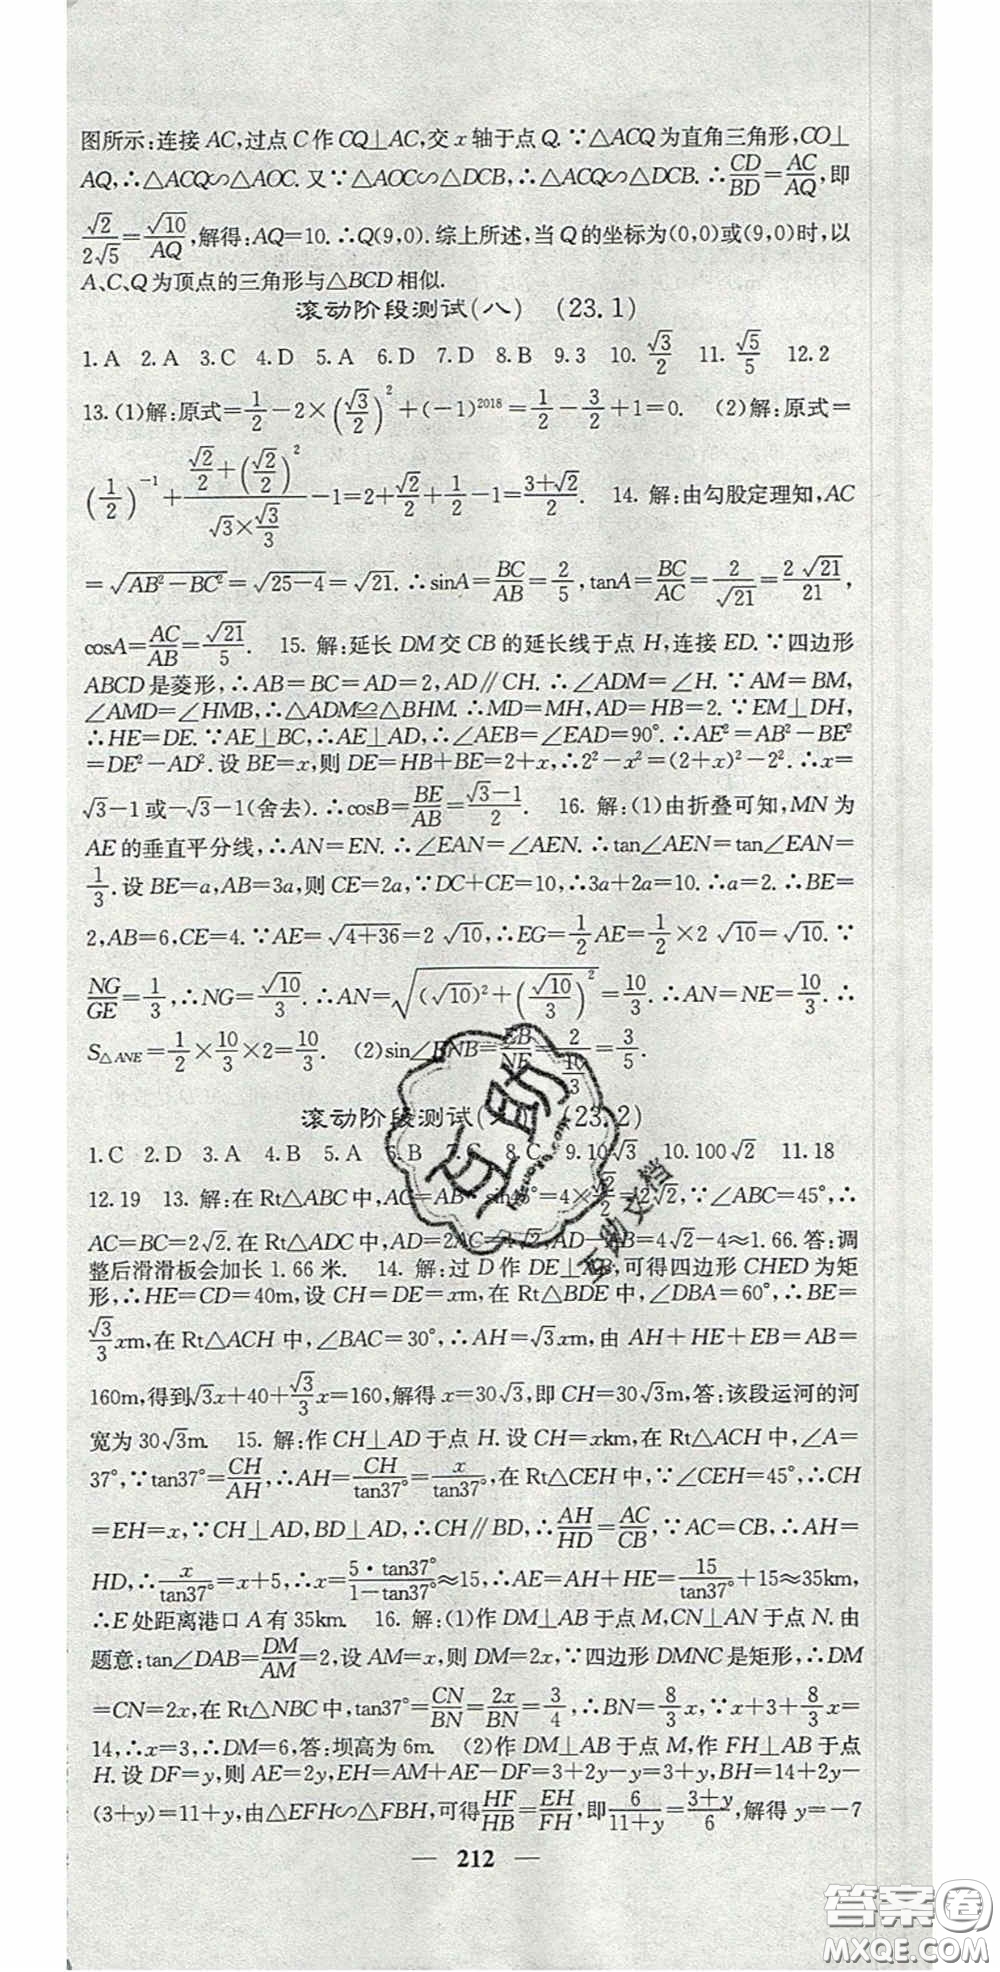 图所示:连接 AC,过点 C 作 CQ⊥AC,交 x 轴于点 Q.∵△ACQ 为直角三角形,CO⊥
AQ,∴△ACQ∽△AOC.又∵△AOC∽△DCB,∴△ACQ∽△DCB.∴CD/BD=AC/AQ,即
√2/2√5=√10/AQ,解得:AQ=10.∴Q(9,0).综上所述,当 Q 的坐标为(0,0)或(9,0)时,以
A、C、Q 为顶点的三角形与△BCD 相似.
滚动阶段测试(八) (23.1)
1.A 2.A 3.C 4.D 5.A 6.D 7.D 8.B 9.3 10.√3/2 11.√5/5 12.2
13.(1)解:原式=1/2-2×(√3/2)²+(-1)²⁰¹⁸=1/2-3/2+1=0. (2)解:原式=
(1/2)⁻¹+(√2/2+(√2/2)²)/(√3×√3/3)-1=2+√2/2+1/2-1=(3+√2)/2. 14.解:由勾股定理知,AC
=√(AB²-BC²)=√(25-4)=√21.∴sinA=BC/AB=2/5,tanA=BC/AC=2/√21=2√21/21,
cosA=AC/AB=√21/5. 15.解:延长 DM 交 CB 的延长线于点 H,连接 ED.∵四边形
ABCD 是菱形,∴AB=BC=AD=2,AD∥CH.∴∠ADM=∠H.∵AM=BM,
∠AMD=∠HMB,∴△ADM≌△BHM.∴MD=MH,AD=HB=2.∵EM⊥DH,
∴HE=DE.∵AE⊥BC,∴AE⊥AD,∴∠AEB=∠EAD=90°.∴AE²=AB²-BE²
=DE²-AD².设 BE=x,则 DE=HB+BE=2+x,∴2²-x²=(2+x)²-2².∴x=
√3-1或-√3-1(舍去).∴cosB=BE/AB=(√3-1)/2. 16.解:(1)由折叠可知,MN 为
AE 的垂直平分线,∴AN=EN.∴∠EAN=∠AEN.∴tan∠AEN=tan∠EAN=
1/3.设 BE=a,AB=3a,则 CE=2a,∵DC+CE=10,∴3a+2a=10.∴a=2.∴BE=
2,AB=6,CE=4.∵AE=√(4+36)=2√10,∴EG=1/2AE=1/2×2√10=√10.∵
NG/GE=1/3,∴NG=√10/3.∴AN=√((√10)²+(√10/3)²)=10/3.∴AN=NE=10/3.∴
S△ANE=1/2×10/3×2=10/3. (2)sin∠ENB=EB/NE=2/(10/3)=3/5.
滚动阶段测试( (23.2)
1.C 2.D 3.A 4.B 5.A 6.B 7.C 8.C 9.10√3 10.100√2 11.18
12.19 13.解:在 Rt△ABC 中,AC=AB·sin45°=4×√2/2=2√2,∵∠ABC=45°,∴
AC=BC=2√2.在 Rt△ADC 中,AD=2AC=4√2,AD-AB=4√2-4≈1.66.答:调
整后滑滑板会加长 1.66 米. 14.解:过 D 作 DE⊥AB,可得四边形 CHED 为矩
形,∴HE=CD=40m,设 CH=DE=xm,在 Rt△BDE 中,∠DBA=60°,∴BE=
√3/3xm,在 Rt△ACH 中,∠BAC=30°,∴AH=√3xm,由 AH+HE+EB=AB=
160m,得到√3x+40+√3/3x=160,解得 x=30√3,即 CH=30√3m,答:该段运河的河
宽为 30√3m. 15.解:作 CH⊥AD 于点 H.设 CH=xkm,在 Rt△ACH 中,∠A=
37°,∵tan37°=CH/AH,∴AH=CH/tan37°=x/tan37°,在 Rt△CEH 中,∵∠CEH=45°,∴CH
=EH=x,∵CH⊥AD,BD⊥AD,∴CH∥BD,∴AH/HD=AC/CB,∵AC=CB,∴AH=
HD,∴x/tan37°=x+5,∴x=5·tan37°/(1-tan37°)≈15,∴AE=AH+HE=15/tan37°+15≈35km,
∴E 处距离港口 A 有 35km. 16.解:(1)作 DM⊥AB 于点 M,CN⊥AN 于点 N.由
题意:tan∠DAB=DM/AM=2,设 AM=x,则 DM=2x,∵四边形 DMNC 是矩形,∴DM
=CN=2x,在 Rt△NBC 中,tan37°=CN/BN=2x/BN=3/4,∴BN=8/3x,∵x+3+8/3x=
14,∴x=3,∴DM=6,答:坝高为 6m. (2)作 DM⊥AB 于点 M,作 FH⊥AB 于点
H.设 DF=y,则 AE=2y,EH=AM+AE-DF=3+2y-y=3+y,BH=14+2y-
(3+y)=11+y,由△EFH∽△FBH,可得HF/HB=EH/FH,即6/(11+y)=(3+y)/6,解得 y=-7
— 212 —
互助
互助文档
答案圈
MXQE.COM